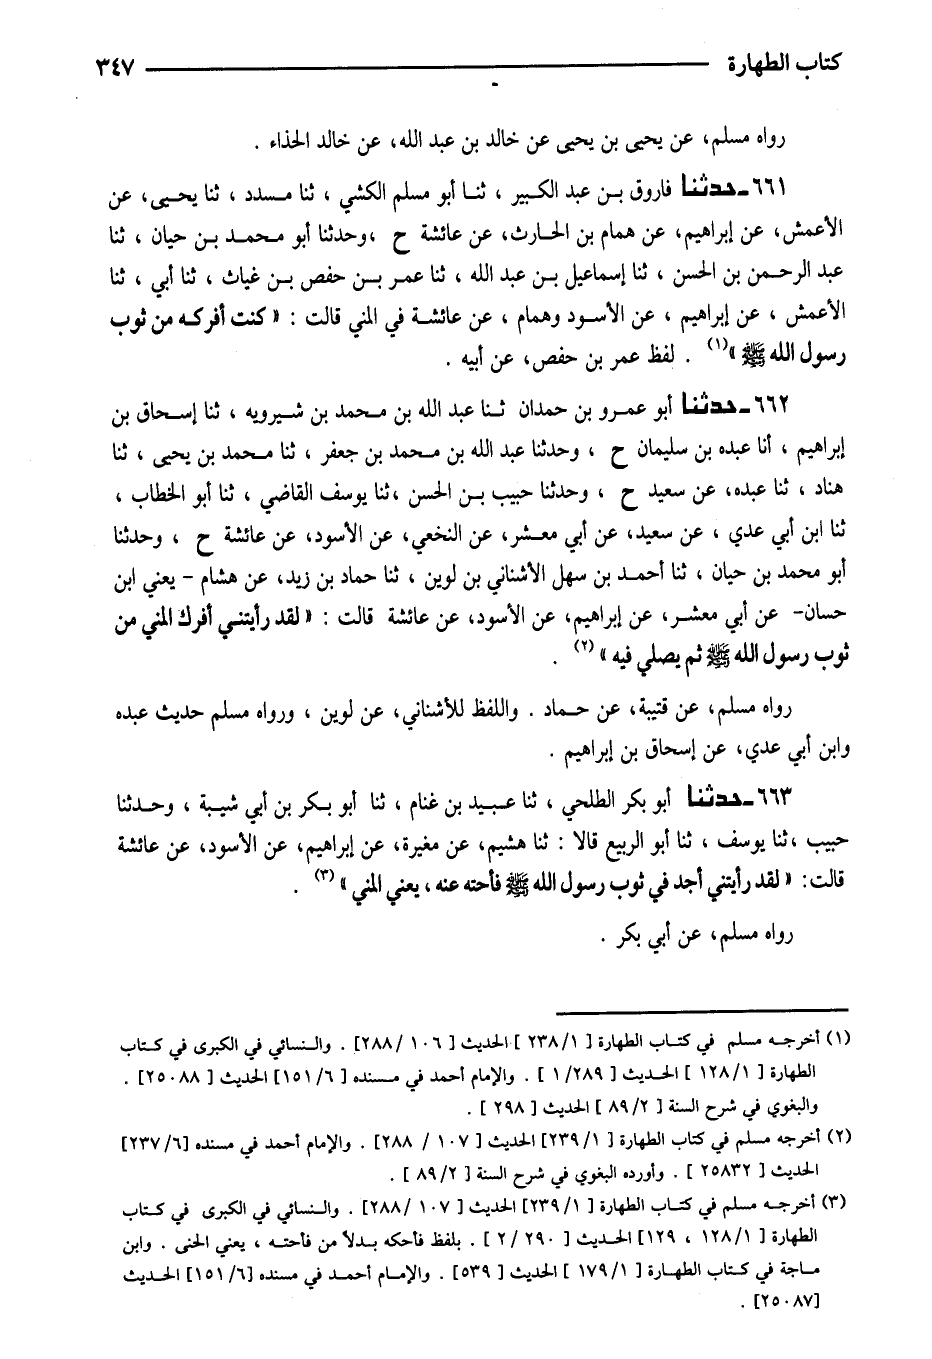 كتاب الطهارة ٣٤٧
رواه مسلم، عن يحيى بن يحيى عن خالد بن عبد الله، عن خالد الحذاء .
٦٦١ـ حدثنا فاروق بن عبد الكبير ، ثنا أبو مسلم الكشي ، ثنا مسدد ، ثنا يحيى، عن
الأعمش، عن إبراهيم، عن همام بن الحارث، عن عائشة ح ،وحدثنا أبو محمد بن حيان ، ثنا
عبد الرحمن بن الحسن ، ثنا إسماعيل بن عبد الله ، ثنا عمر بن حفص بن غياث ، ثنا أبي ، ثنا
الأعمش ، عن إبراهيم ، عن الأسود وهمام ، عن عائشة في المني قالت : « كنت أفركه من ثوب
رسول الله ﷺ »(١) . لفظ عمر بن حفص، عن أبيه .
٦٦٢ـ حدثنا أبو عمرو بن حمدان ثنا عبد الله بن محمد بن شيرويه ، ثنا إسحاق بن
إبراهيم ، أنا عبده بن سليمان ح ، وحدثنا عبد الله بن محمد بن جعفر ، ثنا محمد بن يحيى ، ثنا
هناد ، ثنا عبده، عن سعيد ح ، وحدثنا حبيب بن الحسن ،ثنا يوسف القاضي ، ثنا أبو الخطاب ،
ثنا ابن أبي عدي ، عن سعيد، عن أبي معشر، عن النخعي، عن الأسود، عن عائشة ح ، وحدثنا
أبو محمد بن حيان ، ثنا أحمد بن سهل الأشناني بن لوين ، ثنا حماد بن زيد، عن هشام - يعني ابن
حسان- عن أبي معشر، عن إبراهيم، عن الأسود، عن عائشة قالت : « لقد رأيتني أفرك المني من
ثوب رسول الله ﷺ ثم يصلي فيه »(٢) .
رواه مسلم، عن قتيبة، عن حماد . واللفظ للأشناني، عن لوين ، ورواه مسلم حديث عبده
وابن أبي عدي، عن إسحاق بن إبراهيم .
٦٦٣ـ حدثنا أبو بكر الطلحي ، ثنا عبيد بن غنام ، ثنا أبو بكر بن أبي شيبة ، وحدثنا
حبيب ،ثنا يوسف ، ثنا أبو الربيع قالا : ثنا هشيم، عن مغيرة، عن إبراهيم، عن الأسود، عن عائشة
قالت: « لقد رأيتني أجد في ثوب رسول الله ﷺ فأحته عنه ، يعني المني »(٣) .
رواه مسلم، عن أبي بكر .
(١) أخرجه مسلم في كتاب الطهارة [ ٢٣٨/١ ] الحديث [ ١٠٦ /٢٨٨] . والنسائي في الكبرى في كتاب
الطهارة [ ١٢٨/١ ] الحديث [ ١/٢٨٩ ] . والإمام أحمد في مسنده [ ١٥١/٦] الحديث [ ٢٥٠٨٨] .
والبغوي في شرح السنة [ ٨٩/٢ ] الحديث [ ٢٩٨ ] .
(٢) أخرجه مسلم في كتاب الطهارة [ ٢٣٩/١] الحديث [ ١٠٧ / ٢٨٨] . والإمام أحمد في مسنده [٢٣٧/٦]
الحديث [ ٢٥٨٣٢ ] . وأورده البغوي في شرح السنة [ ٨٩/٢ ] .
(٣) أخرجه مسلم في كتاب الطهارة [ ٢٣٩/١] الحديث [ ١٠٧ /٢٨٨] . والنسائي في الكبرى في كتاب
الطهارة [ ١٢٨/١ ، ١٢٩] الحديث [ ٢٩٠ /٢ ] . بلفظ فأحكه بدلاً من فأحته ، يعني الحنى . وابن
ماجة في كتاب الطهارة [ ١٧٩/١ ] الحديث [ ٥٣٩] . والإمام أحمد في مسنده [١٥١/٦] الحديث
[٢٥٠٨٧] .